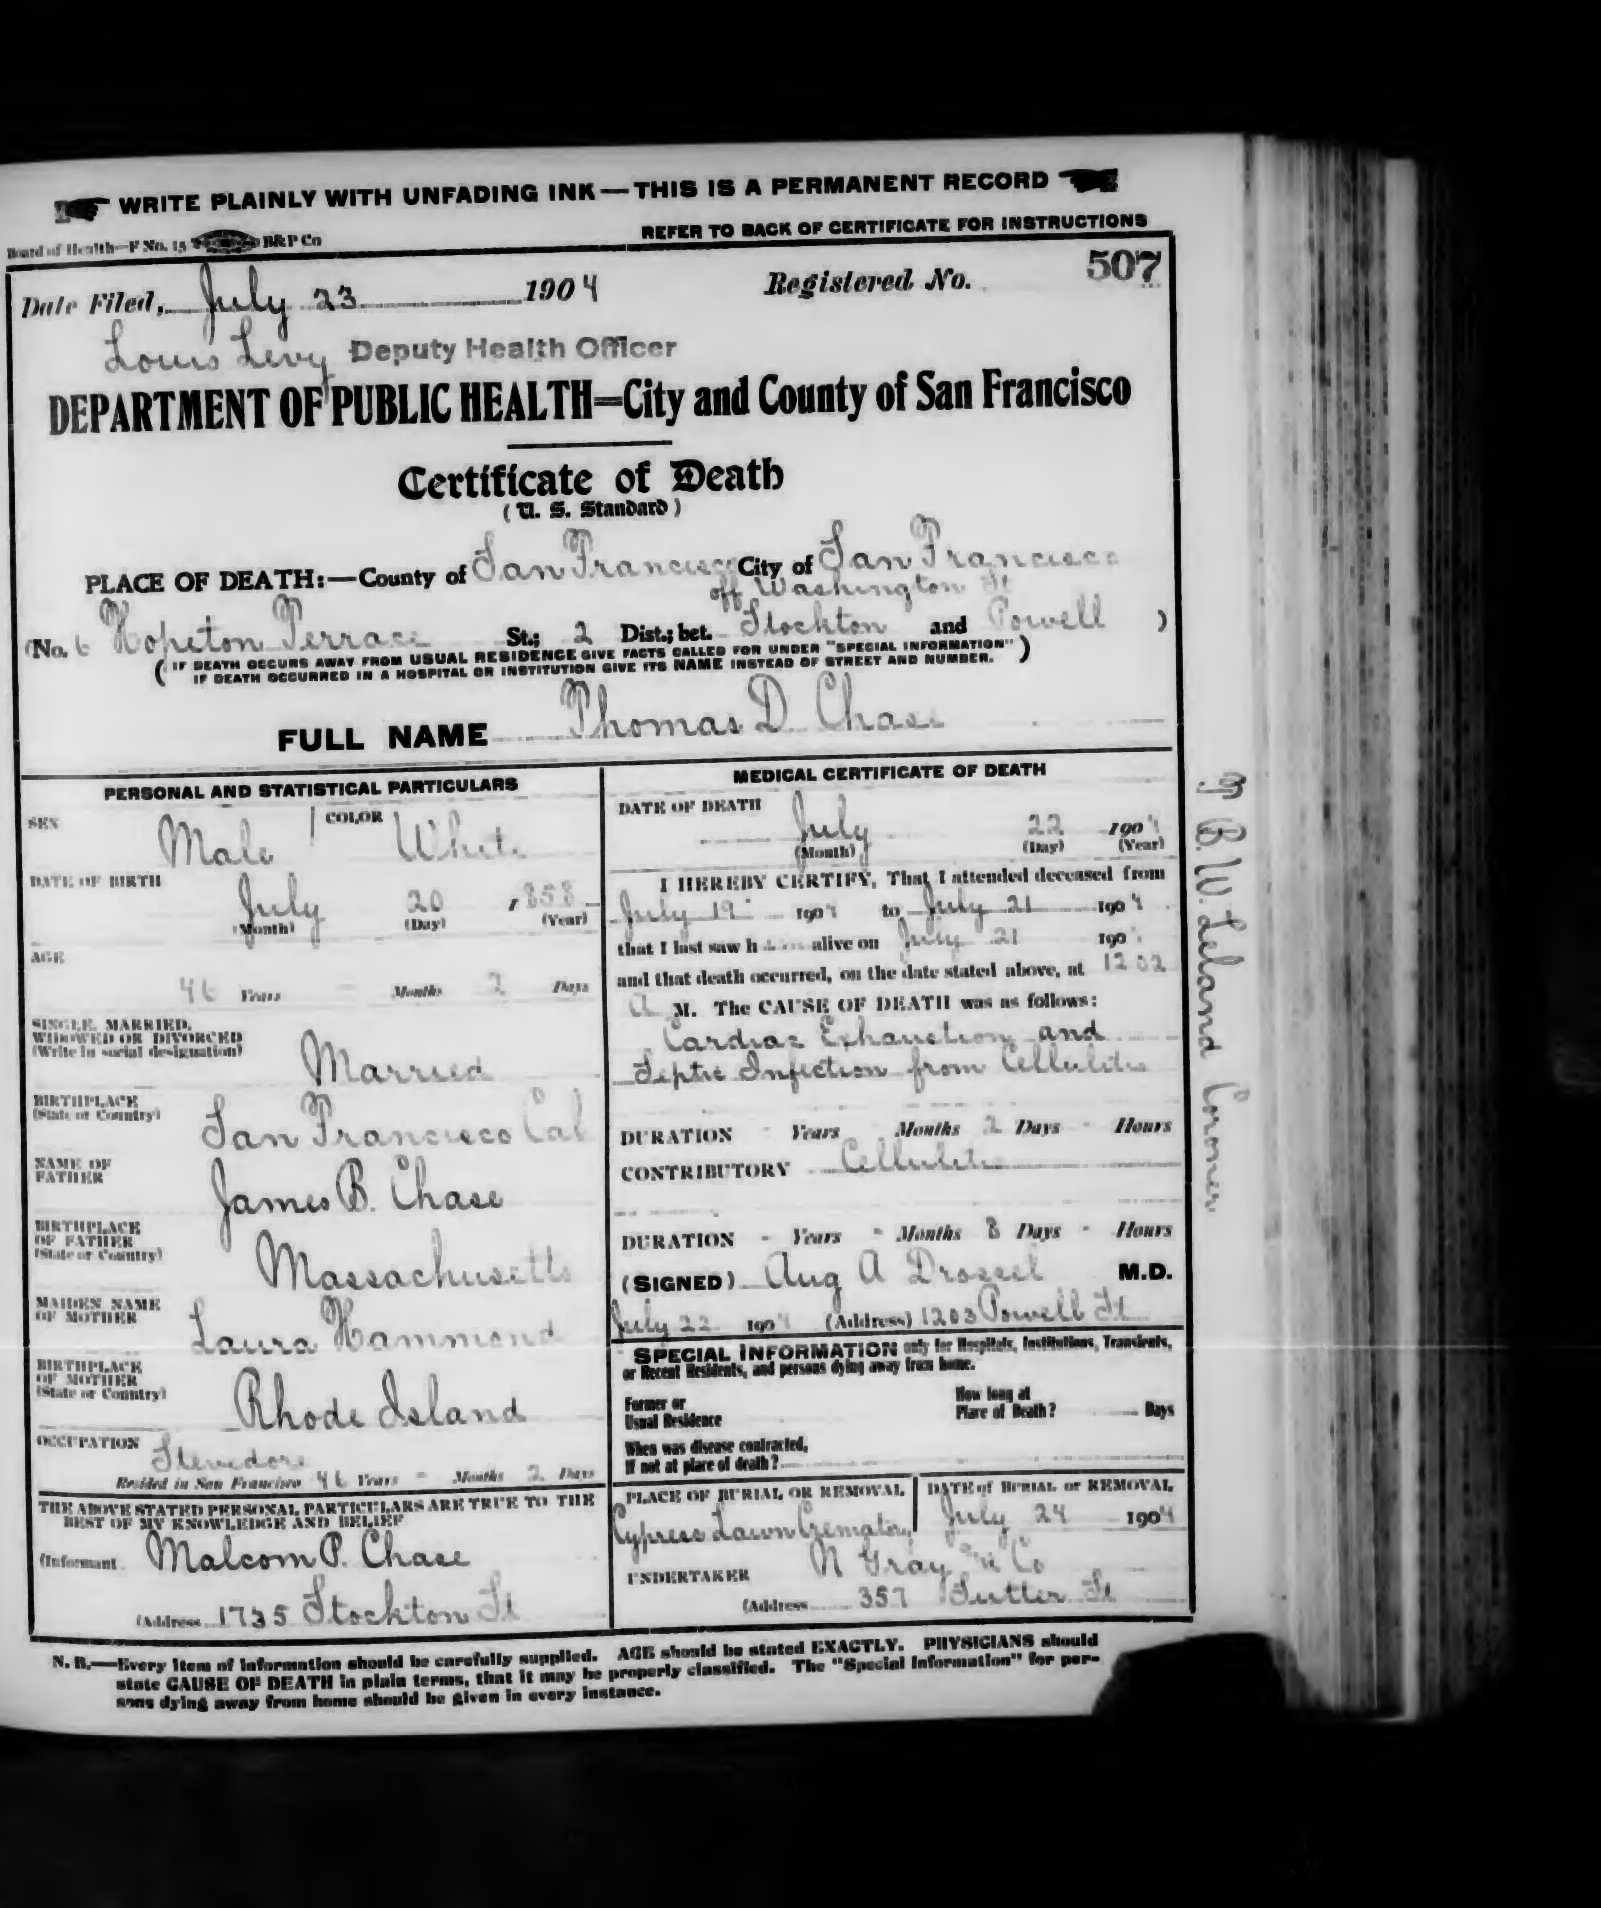 WRITE PLAINLY WITH UNFADING INK—THIS IS A PERMANENT RECORD
Board of Health—F No. 15 B&P Co
REFER TO BACK OF CERTIFICATE FOR INSTRUCTIONS
Date Filed, July 23 1904
Registered No. 507
Louis Levy Deputy Health Officer
DEPARTMENT OF PUBLIC HEALTH=City and County of San Francisco
Certificate of Death
(U. S. Standard)
PLACE OF DEATH:—County of San Francisco City of San Francisco
off Washington St
(No. 6 Hopeton Terrace St.; 2 Dist.; bet. Stockton and Powell )
( IF DEATH OCCURS AWAY FROM USUAL RESIDENCE GIVE FACTS CALLED FOR UNDER "SPECIAL INFORMATION" )
IF DEATH OCCURRED IN A HOSPITAL OR INSTITUTION GIVE ITS NAME INSTEAD OF STREET AND NUMBER.
FULL NAME Thomas D Chase
PERSONAL AND STATISTICAL PARTICULARS
SEX Male
COLOR White
DATE OF BIRTH
July 20 1858
(Month) (Day) (Year)
AGE
46 Years - Months 2 Days
SINGLE, MARRIED,
WIDOWED OR DIVORCED
(Write in social designation)
Married
BIRTHPLACE
(State or Country)
San Francisco Cal
NAME OF
FATHER
James B. Chase
BIRTHPLACE
OF FATHER
(State or Country)
Massachusetts
MAIDEN NAME
OF MOTHER
Laura Hammond
BIRTHPLACE
OF MOTHER
(State or Country)
Rhode Island
OCCUPATION
Stevedore
Resided in San Francisco 46 Years - Months 2 Days
THE ABOVE STATED PERSONAL PARTICULARS ARE TRUE TO THE
BEST OF MY KNOWLEDGE AND BELIEF
(Informant Malcom P. Chase
(Address 1735 Stockton St
MEDICAL CERTIFICATE OF DEATH
DATE OF DEATH
July 22 1904
(Month) (Day) (Year)
I HEREBY CERTIFY, That I attended deceased from
July 19 1904 to July 21 1904
that I last saw h alive on July 21 190
and that death occurred, on the date stated above, at 12 02
A M. The CAUSE OF DEATH was as follows:
Cardiac Exhaustion and
Septic Infection from Cellulitis
DURATION - Years Months 2 Days - Hours
CONTRIBUTORY Cellulitis
DURATION - Years - Months 8 Days - Hours
(SIGNED) Aug A Drossel M.D.
July 22 1904 (Address) 1203 Powell St
SPECIAL INFORMATION only for Hospitals, Institutions, Transients,
or Recent Residents, and persons dying away from home.
Former or
Usual Residence
How long at
Place of Death? Days
When was disease contracted,
If not at place of death?
PLACE OF BURIAL OR REMOVAL
Cypress Lawn Crematory
DATE of BURIAL or REMOVAL
July 24 1904
UNDERTAKER N Gray & Co
(Address 357 Sutter St
N. B.—Every item of information should be carefully supplied. AGE should be stated EXACTLY. PHYSICIANS should
state CAUSE OF DEATH in plain terms, that it may be properly classified. The "Special Information" for per-
sons dying away from home should be given in every instance.
B. W. Leland Coroner